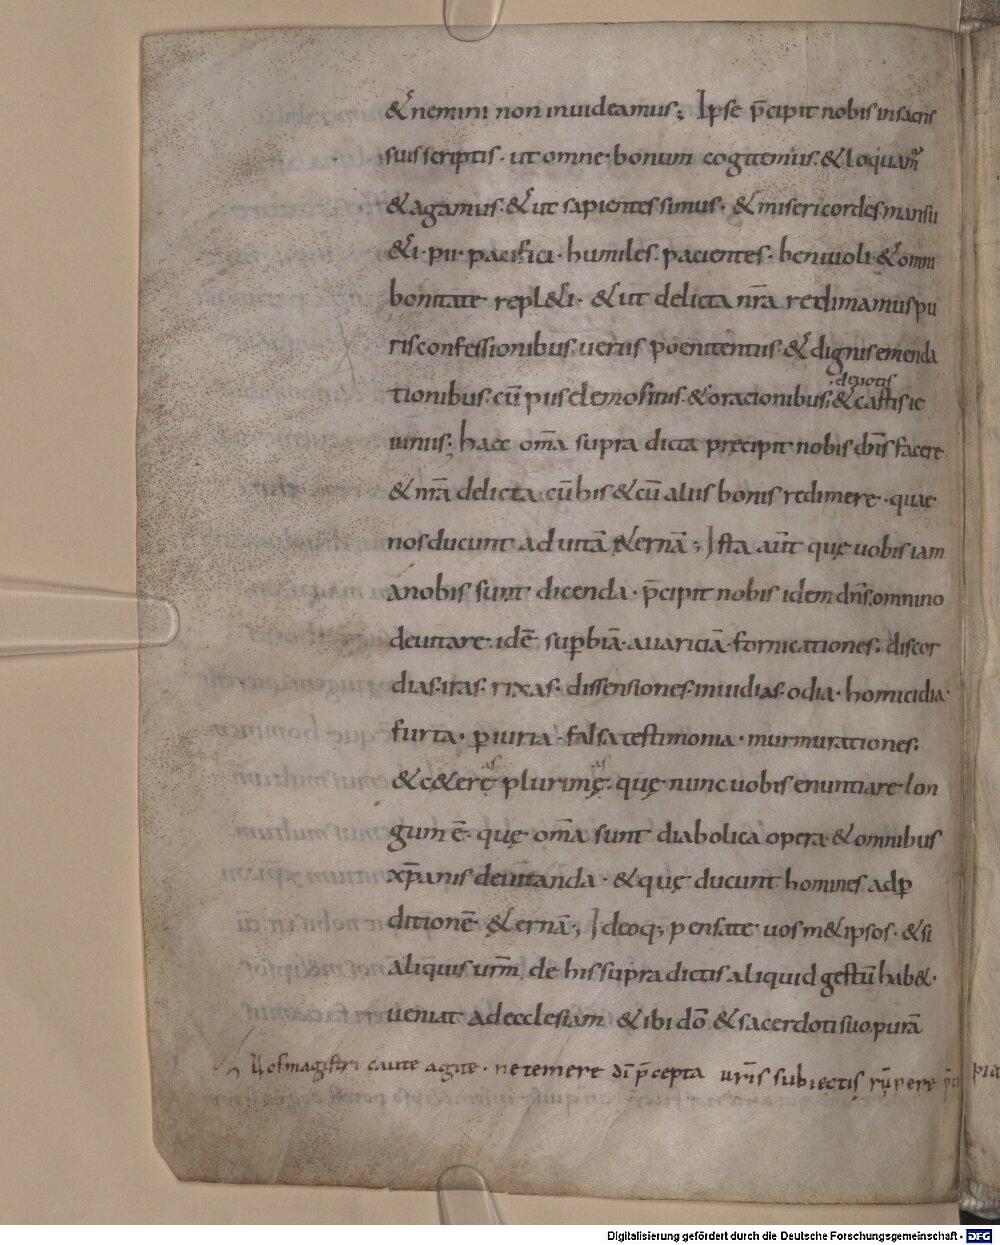 & nemini non inuideamus; Ipse p̄cipit nobis in sacris
suis scriptis · ut omne bonum cogitemus · & loquam̄
& agamus · & ut sapientes simus · & misericordes mansu
&i · pii · pacifici · humiles · pacientes · beniuoli · & omni
bonitate repl&i · & ut delicta nr̄a redimamus pu
ris confessionibus · ueris poenitentiis · & dignis emenda
deuotis
tionibus · cū piis elemosinis · & oracionibus; & castis ie
iuniis; haec om̄a supra dicta pręcipit nobis dn̄s facere
& nr̄a delicta · cū his & cū aliis bonis redimere · quae
nos ducunt ad uitā &ernā; Ista aūt quę uobis iam
a nobis sunt dicenda · p̄cipit nobis idem dn̄s omnino
deuitare · idē sup̄biā · auariciā · fornicationes · discor
dias · iras · rixas · dissensiones · inuidias · odia · homicidia ·
furta · p̄iuria · falsa testimonia · murmurationes ·
as as
& c&erę plurimę · quę nunc uobis enuntiare lon
gum ē · quę om̄a sunt diabolica opera · & omnibus
xp̄ianis deuitanda · & quę ducunt homines ad p̄
ditionē &ernā; Ideoq; pensate uosm&ipsos · & si
aliquis ur̄m de his supra dictis aliquid gestū hab& ·
ueniat ad ecclesiam & ibi dō & sacerdoti suo purā
Uos magistri caute agite · ne temere dī p̄cepta ur̄is subiectis rūpere